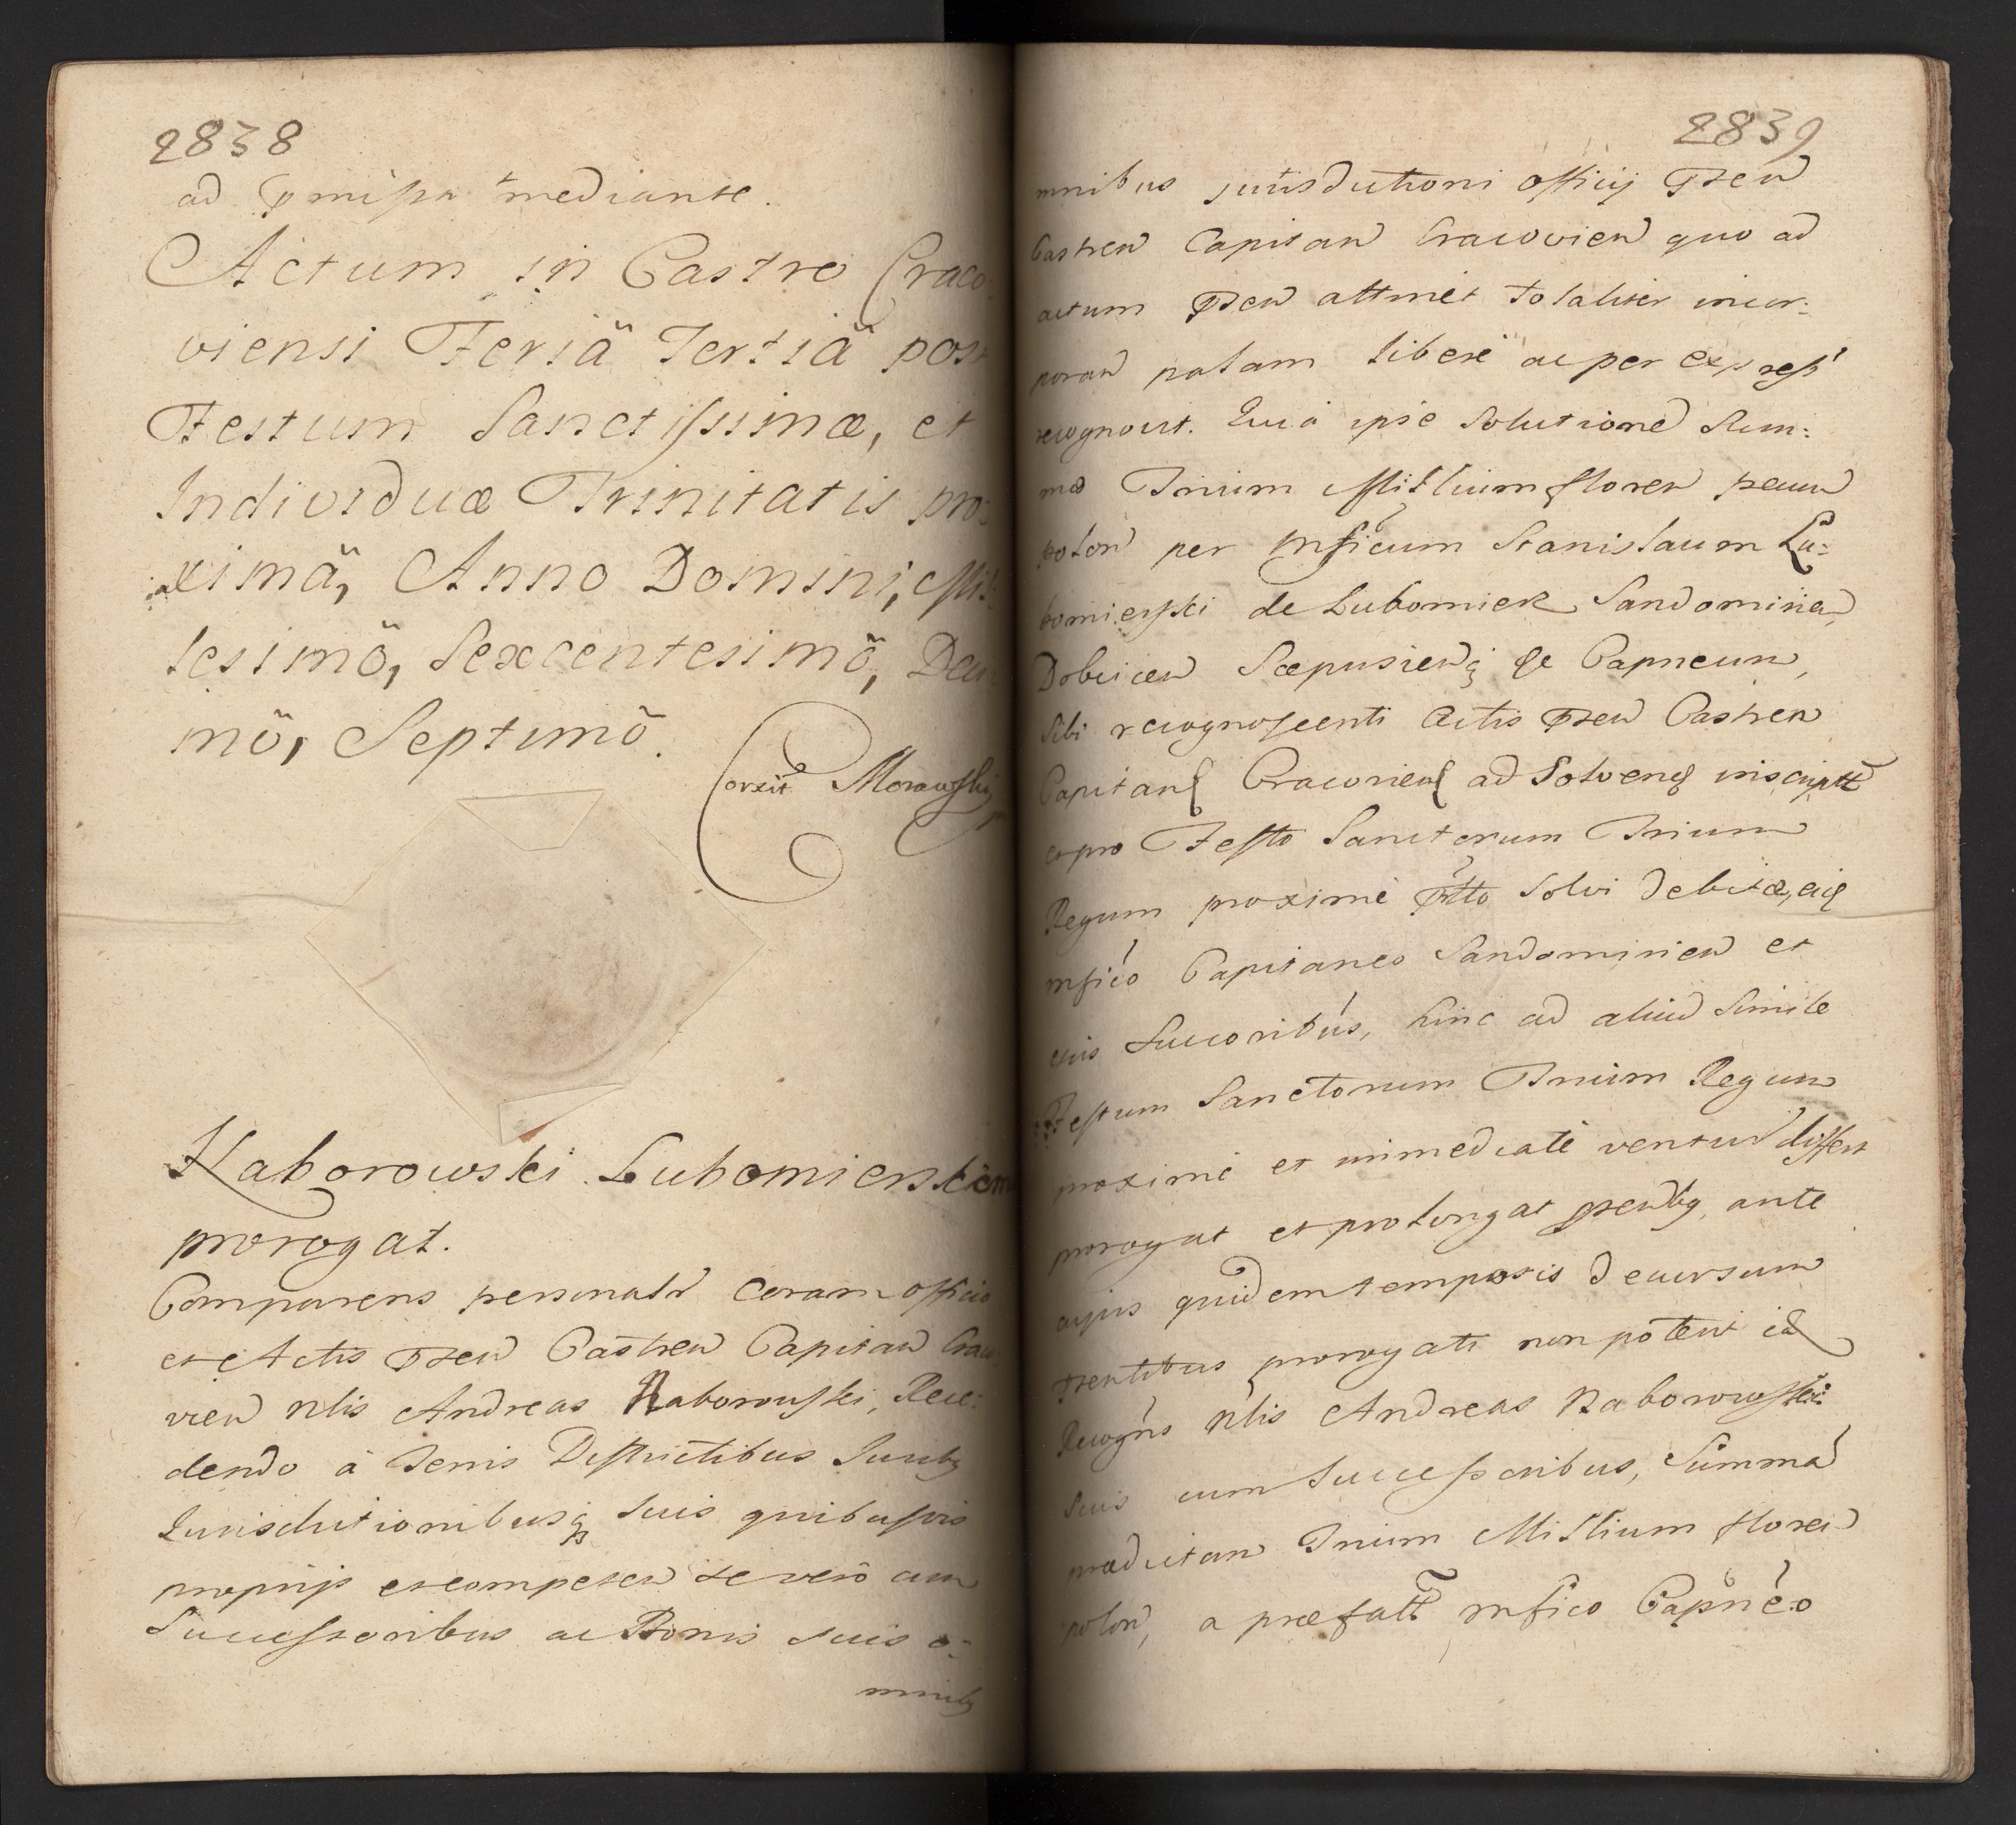 2838
ad p̄missa mediante.
Actum in Castro Craco
viensi Feriã Tertiã post
Festum Sanctissimæ, et
Individuæ Trinitatis pro:
ximã, Anno Domini, Mil:
lesimõ, Sexcentesimõ, Deci:
mõ, Septimõ.
Corxit Morawski
Naborowski Lubomierskiem
prorogat.
Comparens personalr coram officio
et Actis pñten Castren Capitan Craco
vien Nlis Andreas Naborowski, Rece:
dendo à Terris Districtibus Juriby
Jurisdictionibusq suis quibusvis
proprijs et competen se vero cum
Successoribus ac Bonis suis o:
mniby
2839
mnibus jurisdictioni officij pñten
Castren Capitan Cracovien quo ad
actum pñten attinet totaliter incor:
poran palam liberè ac per expresß
recognovit. Quia ipse Solutione Sum:
mæ Trium Millium floren pecun
polon per Mficum Stanislaum Lu:
bomierski de Lubomierz Sandomirien,
Dobcicen Scepusienq &c Capneum,
sibi recognoscenti Actis pñten Castren
Capitan Cracovien ad Solven inscriptt
et pro Festo Sanctorum Trium
Regum proximè pñtto Solvi debitæ, eid
mfico Capitaneo Sandomirien et
eius Succoribus, hinc ad aliud simile
Festum Sanctorum Trium Regum
proximè et immediatè ventur differt
prorogat et prolongat pñtenby, ante
cujus quidem temporis decursum
pñtentibus prorogati non poterit id
Recogñs Nlis Andreas Naborowski
suis cum Successoribus, Summã
prædictam Trium Millium floren
polon, a præfatt mfico Capneo